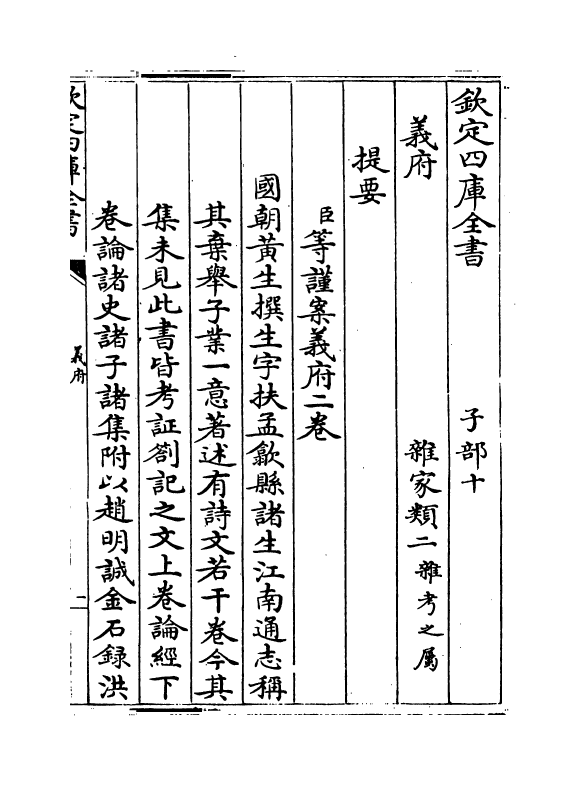 欽定四庫全書　子部十
義府　雜家類二雜考之屬
提要
臣等謹案義府二卷
國朝黃生撰生字扶孟歙縣諸生江南通志稱
其棄舉子業一意著述有詩文若干卷今其
集未見此書皆考証劄記之文上卷論經下
卷論諸史諸子諸集附以趙明誠金石錄洪
欽定四庫全書
義府